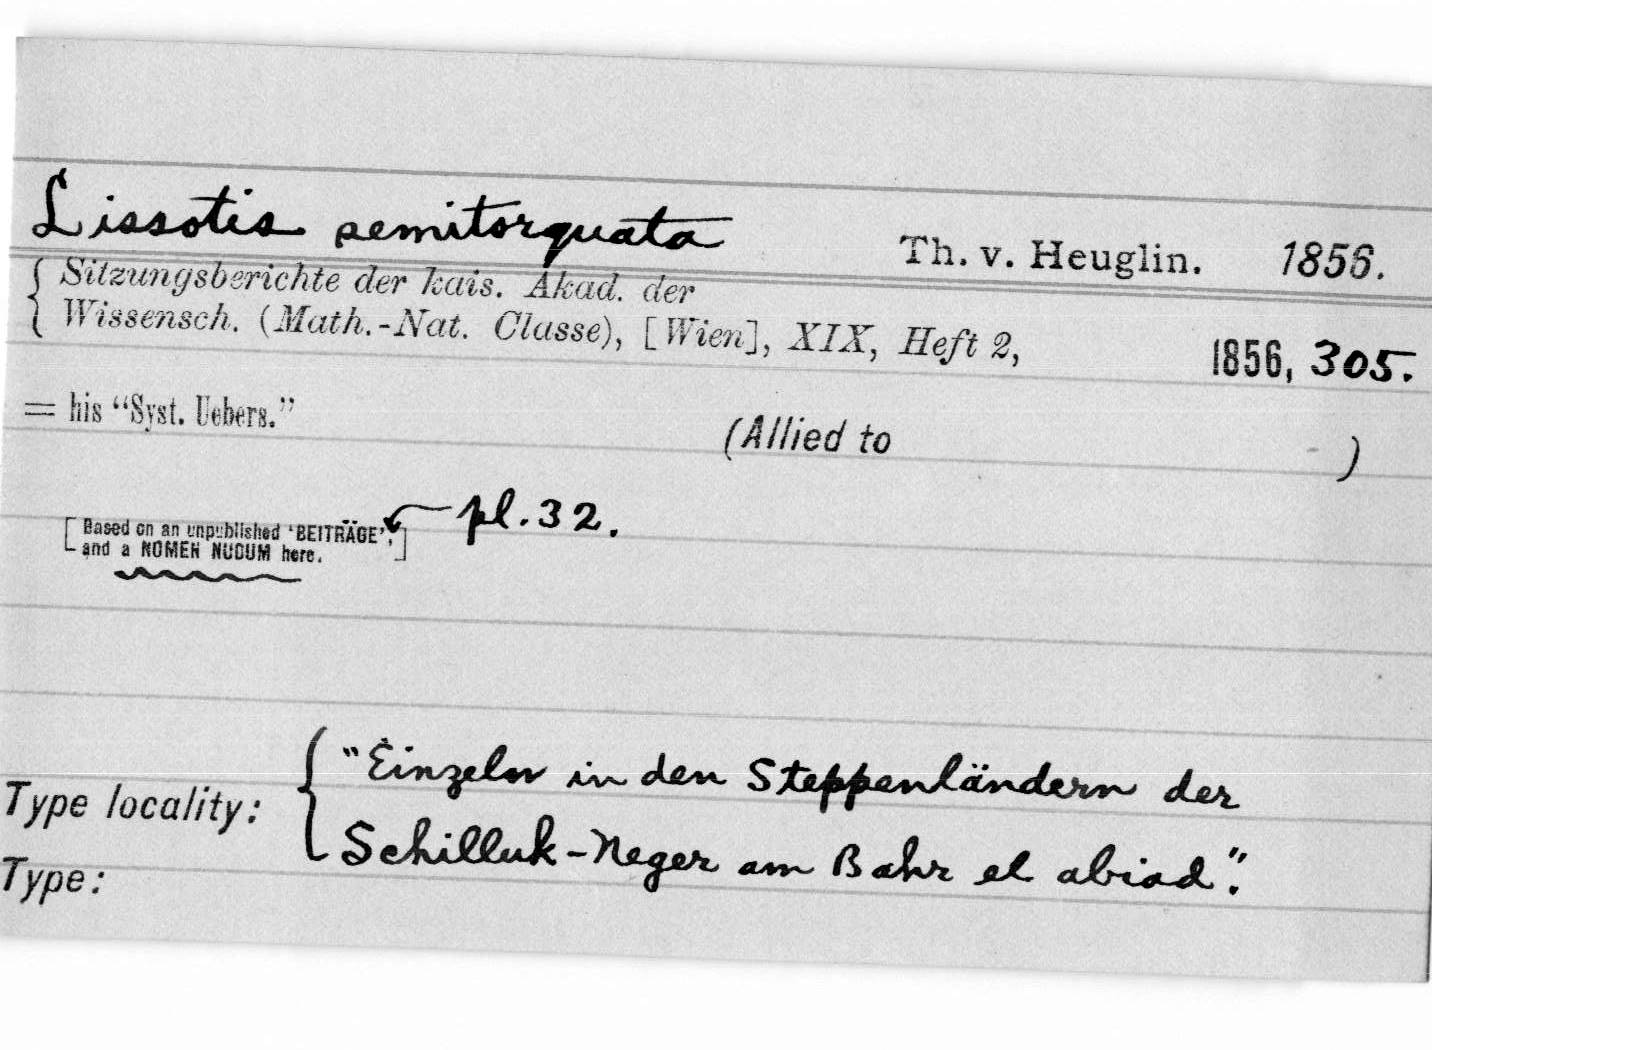 Lissotis semitorquata Th. v. Heuglin. 1856.
Sitzungsberichte der kais. Akad. der
Wissensch. (Math.-Nat. Classe), [Wien], XIX, Heft 2, 1856, 305.
= his "Syst. Uebers."
(Allied to )
pl. 32.
[Based on an unpublished 'BEITRÄGE',
and a NOMEN NUDUM here.]
"Einzeln in den Steppenländern der
Type locality:
Schilluk-Neger am Bahr el abiad".
Type: